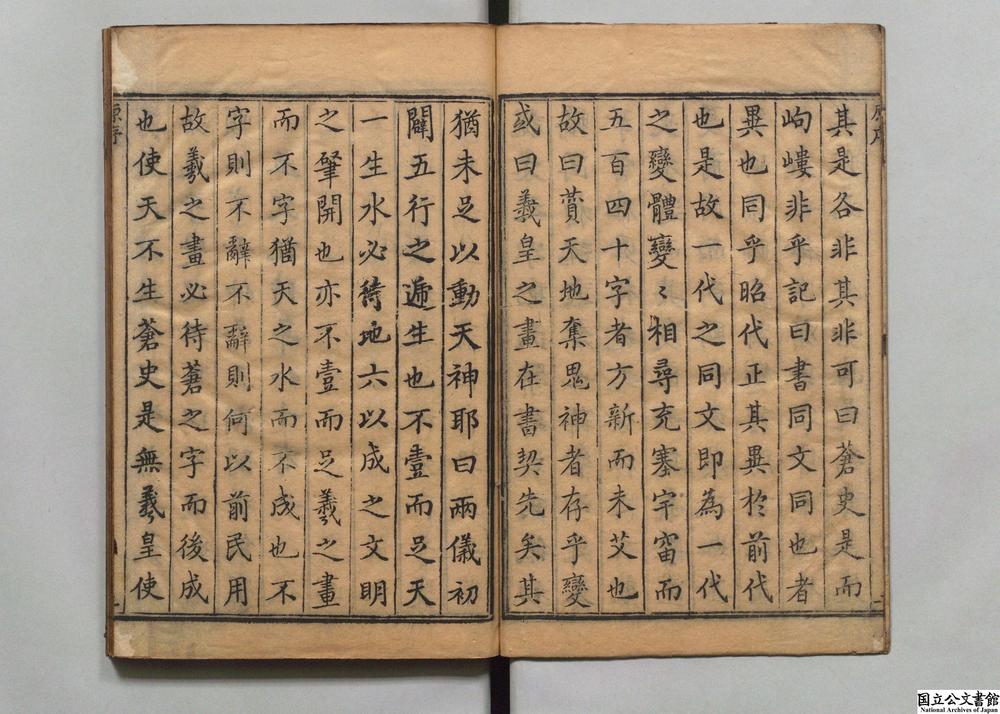 其是各非其非可曰蒼史是而
岣嶁非乎記曰書同文同也者
異也同乎昭代正其異於前代
也是故一代之同文即為一代
之變體變〻相尋充塞宇宙而
五百四十字者方新而未艾也
故曰賁天地奪鬼神者存乎變
或曰羲皇之畫在書契先矣其
猶未足以動天神耶曰兩儀初
闢五行之遞生也不壹而足天
一生水必待地六以成之文明
之肇開也亦不壹而足羲之畫
而不字猶天之水而不成也不
字則不辭不辭則何以前民用
故羲之畫必待蒼之字而後成
也使天不生蒼史是無羲皇使
原序
原序
一
国立公文書館
National Archives of Japan